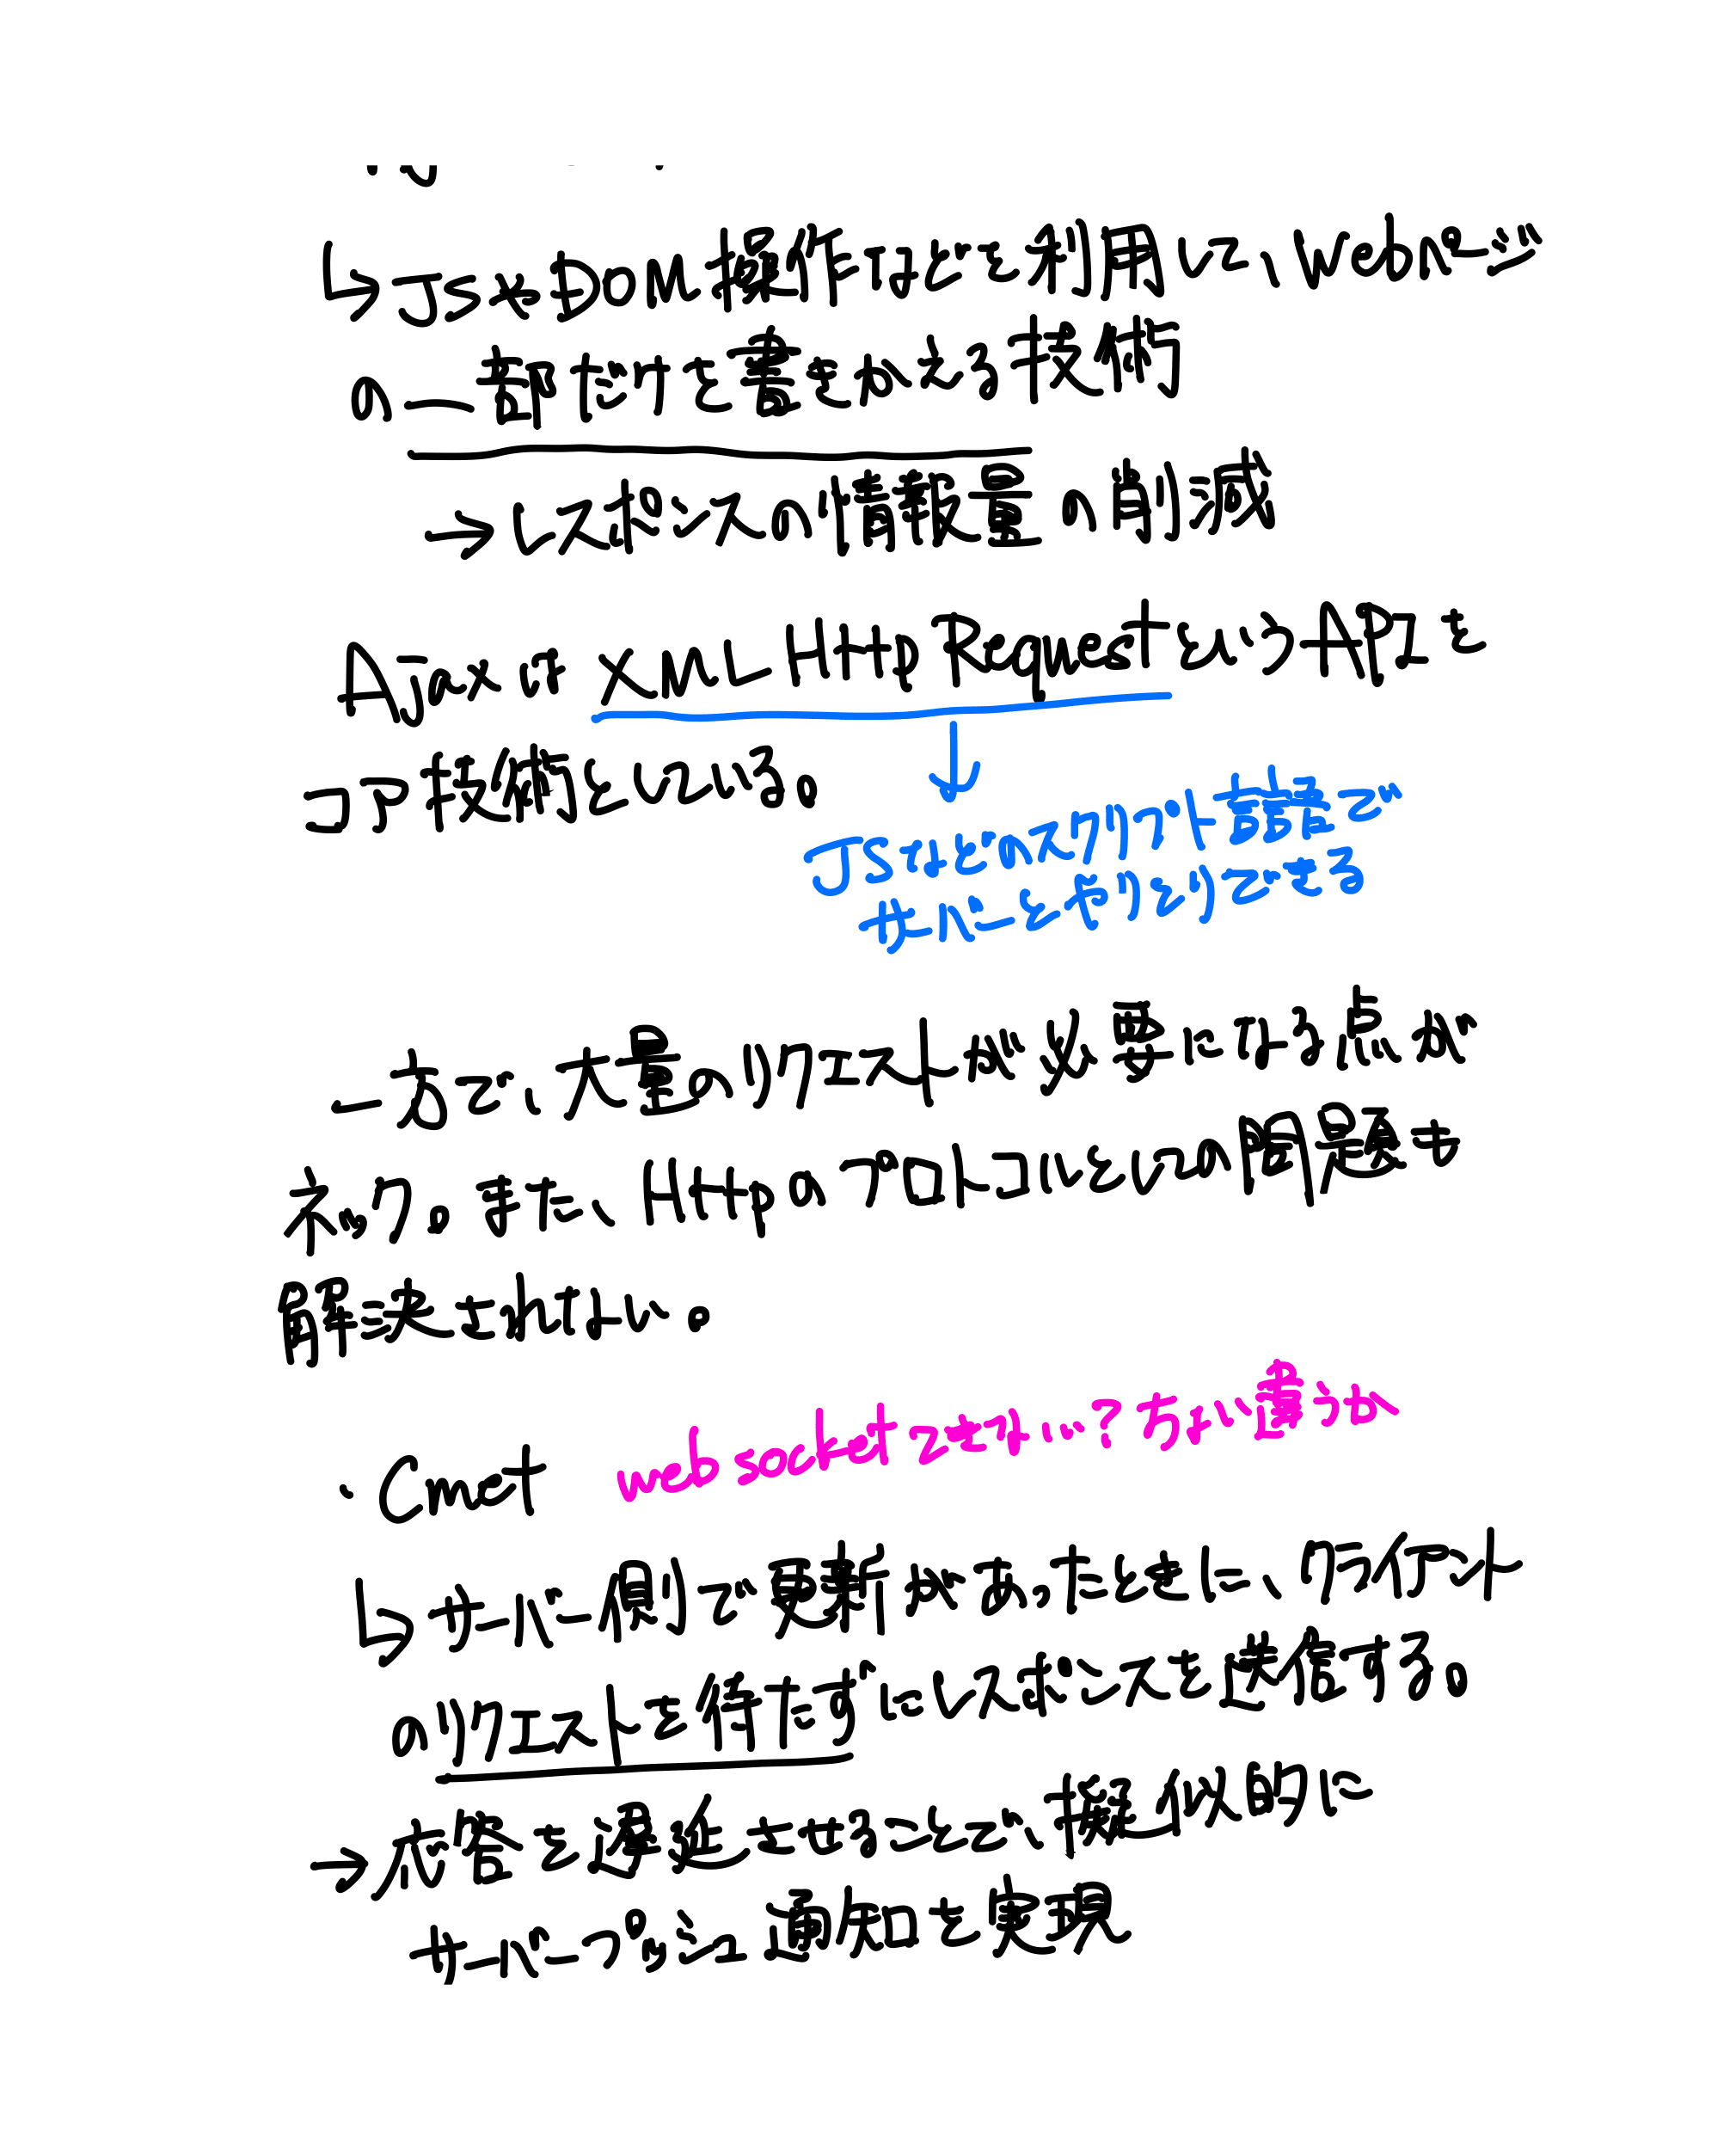 ↳JSやDOM操作などを利用して、Webページ
の一部だけを書きかえる技術
→レスポンスの情報量の削減
Ajaxは XML HttpRequestというAPIを
コア技術としている。
↓
JSなどのスクリプト言語で
サーバーとやりとりできる
一方で、大量のリクエストが必要になる点が
ネック。また、Httpのプロトコルとしての問題も
解決されない。
・Cmet web socketでよくない?ちがい書うか
↳サーバー側で更新があったときに、クライアント
のリクエストを待たずにレスポンスを送信する。
→応答を遅延させることで、擬似的に
サーバープッシュ通知を実現